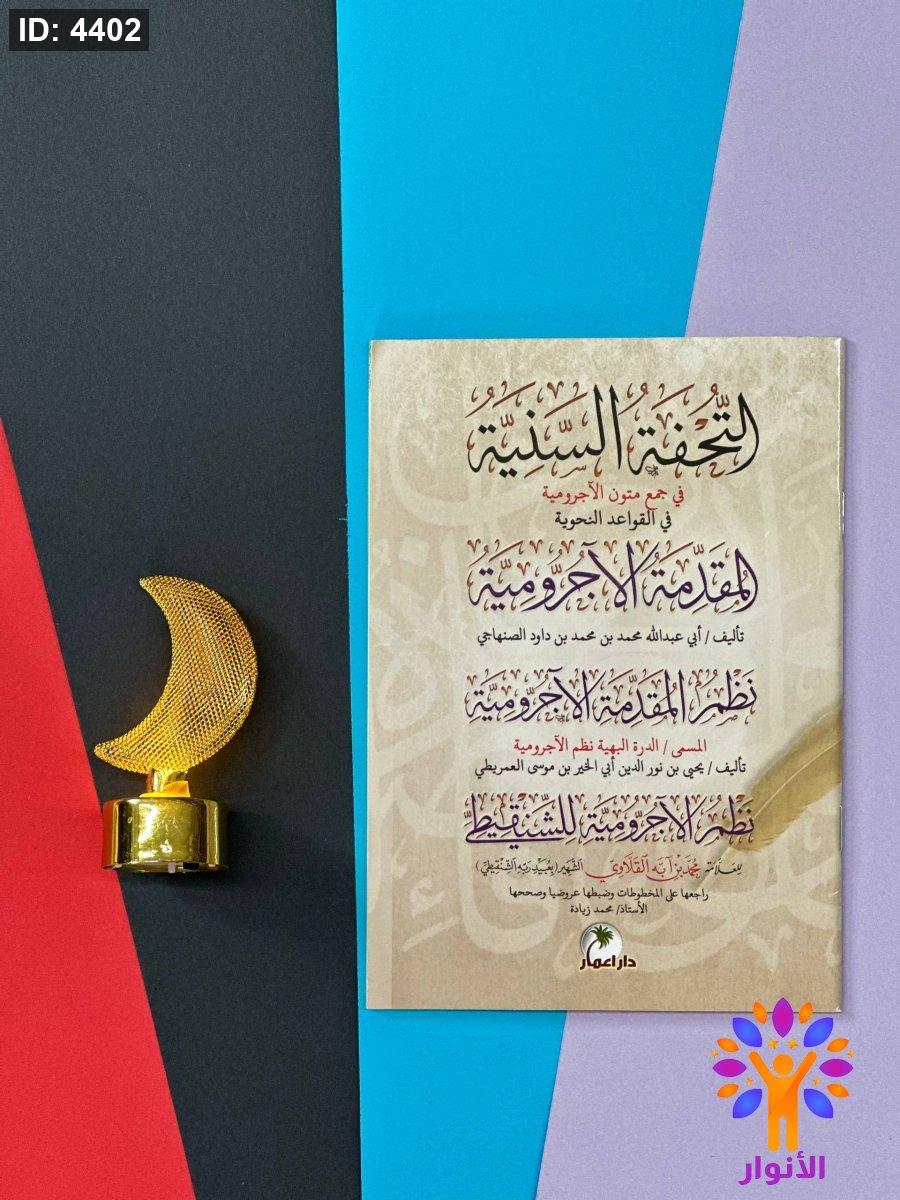 ID: 4402
التُّحْفَةُ السَّنِيَّةُ
في جمع متون الآجرومية
في القواعد النحوية
المُقَدِّمَةُ الآجُرُّومِيَّةُ
تأليف / أبي عبدالله محمد بن محمد بن داود الصنهاجي
نَظْمُ المُقَدِّمَةِ الآجُرُّومِيَّةِ
المسمى / الدرة البهية نظم الآجرومية
تأليف / يحيى بن نور الدين أبي الخير بن موسى العمريطي
نَظْمُ الآجُرُّومِيَّةِ لِلشِّنْقِيطِيِّ
للعلامة مُحَمَّد بْن آبَّه القَلَّاوِي الشهير (بِعُبَيْد رَبِّه الشِّنْقِيطِيِّ)
راجعها على المخطوطات وضبطها عروضيا وصححها
الأستاذ/ محمد زيادة
دار اعمار
الأنوار